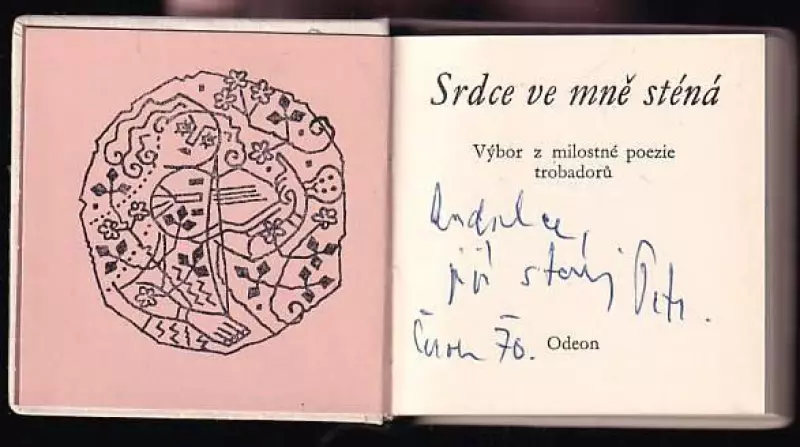 Srdce ve mně sténá
Výbor z milostné poezie
trobadorů
Andulce,
její starý Petr.
Červen 70.
Odeon